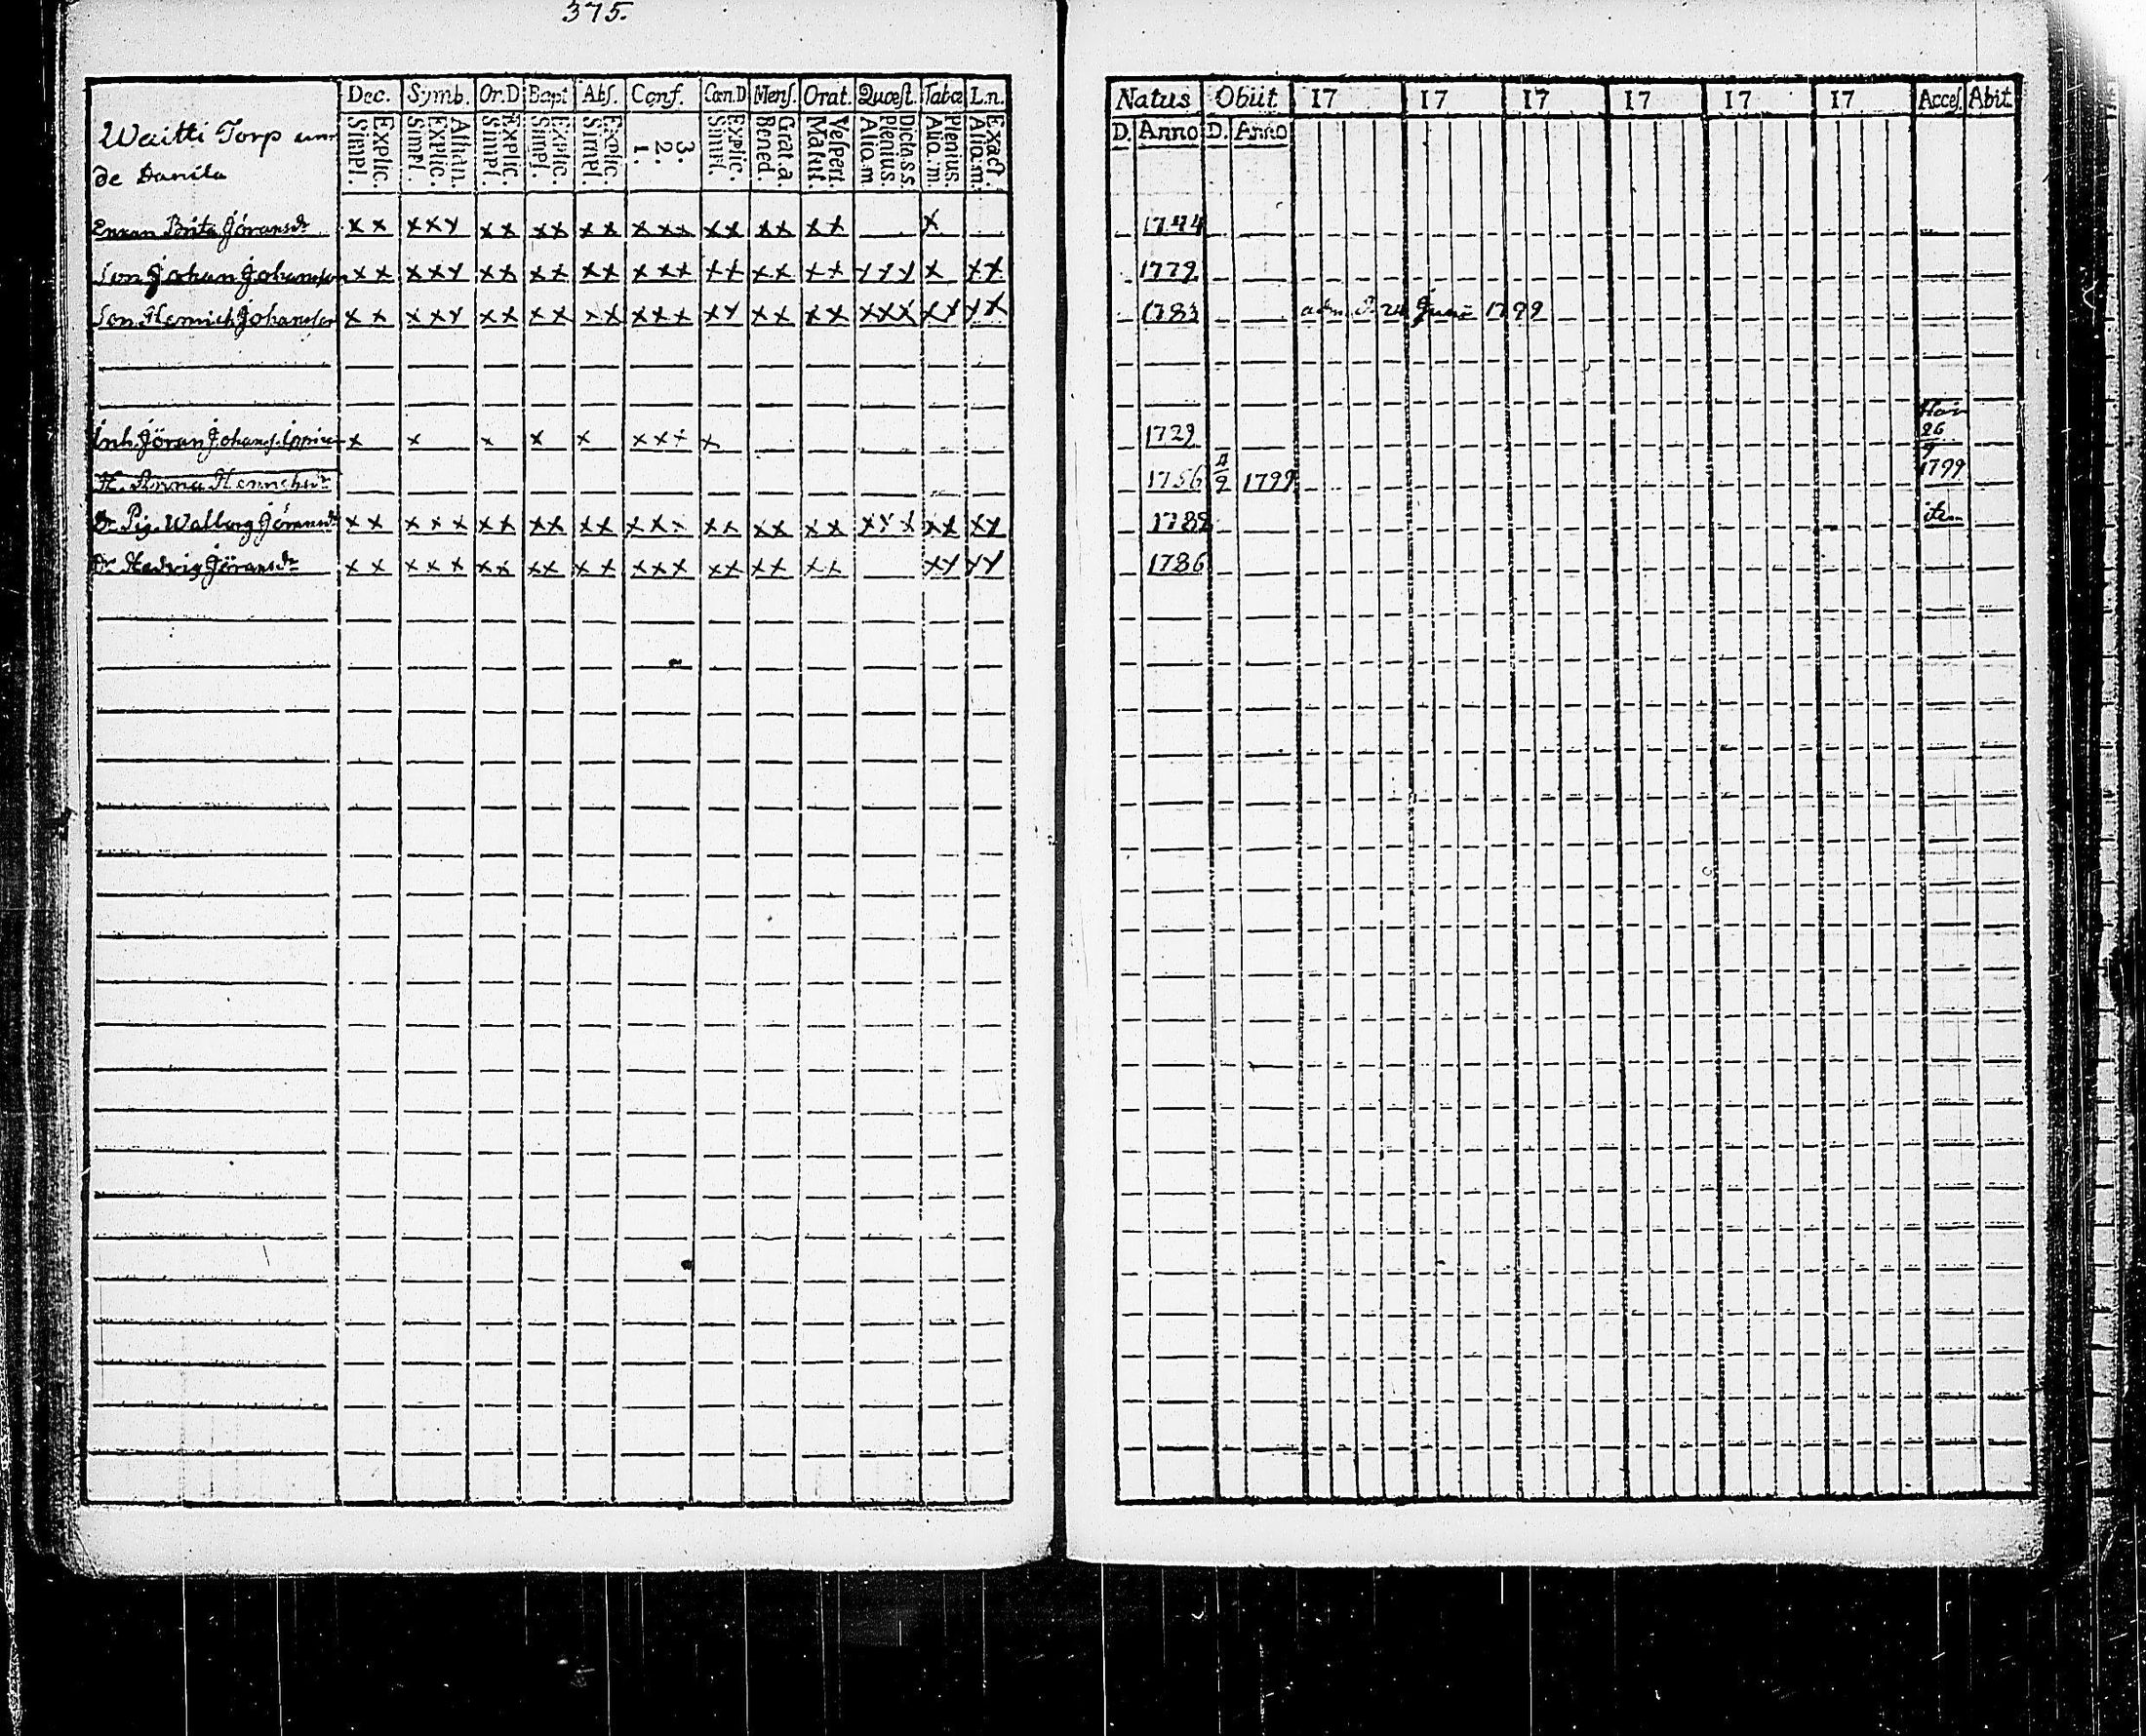 375.
Dec. Symb. Or.D Bapt Abs. Conf. Can.D Mens. Orat. Quæst. Tabæ L.n.
Simpl. Explic. Simpl. Explic. Athan. Simpl. Explic. Simpl. Explic. Simpl. Explic. 1. 2. 3. Simpl. Explic. Bened. Grat.a. Matut. Vespert. Alio.m Plenius. Dicta.s.s. Alio.m. Plenius. Alio.m. Exact.
Waitti Torp un
de Danila
Natus Obiit 17 17 17 17 17 17 Acces. Abit
D. Anno D. Anno
Enkan Brita Jöransdr x x x x x x x x x x x x x x x x x x x x x 1744
Son Johan Johansson x x x x x x x x x x x x x x x x x x x x x x x x x 1779
Son Henrich Johansson x x x x x x x x x x x x x x x x x x x x x x x x x x 1783 adm. d. 24 Junii 1799
Inh. Jöran Johans. x x x x x x x x x 1729 26
9
H. Anna Henrichsdr 1756 4/9 1799 1799
Dr Pig. Walborg Jöransdr x x x x x x x x x x x x x x x x x x x x x x x x x x 1782 item
Dr Hedvig Jöransdr x x x x x x x x x x x x x x x x x x x x x x x 1786